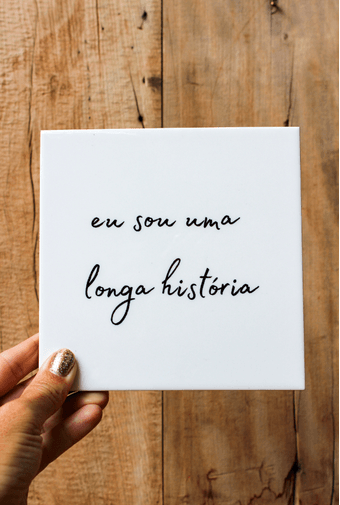 eu sou uma
longa história